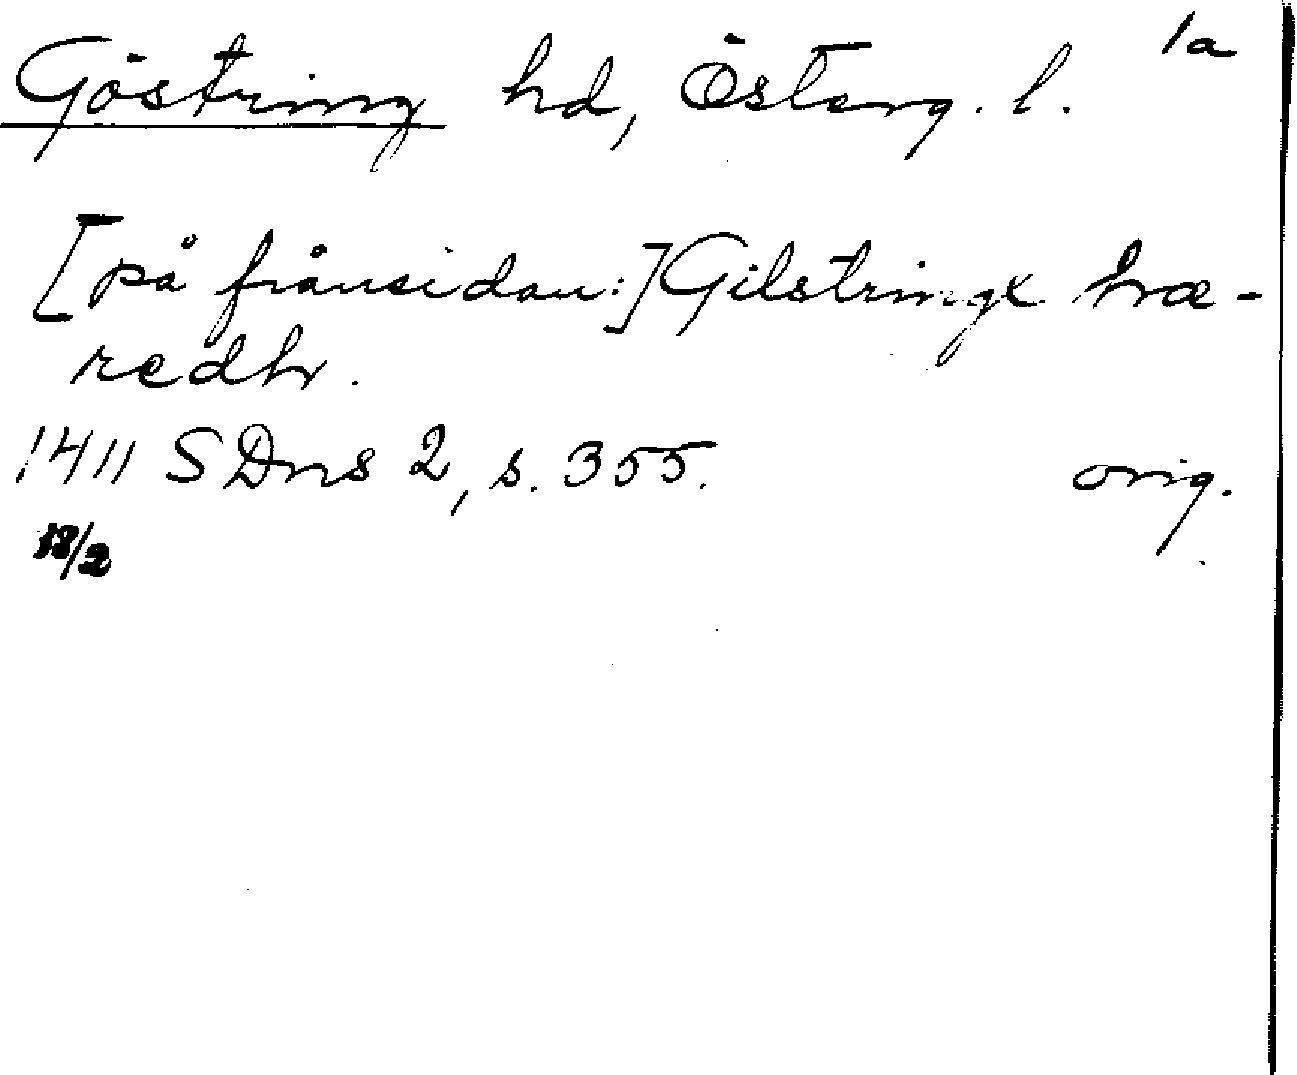 Göstring hd, Österg. l. 1a
[på frånsidan:] Gilstringx hæ-
redh.
1411 SDns 2, s. 355. orig.
18/2